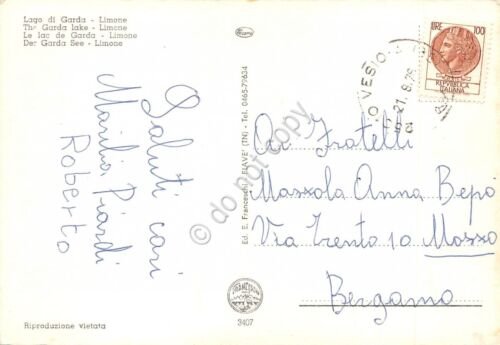 Lago di Garda - Limone
The Garda lake - Limone
Le lac de Garda - Limone
Der Garda See - Limone
Saluti cari
Marilia, Piardi
Roberto
Riproduzione vietata
Ed. E. Franceschi, FIAVE' (TN) - Tel. 0465-79634
3407
LIRE 100
REPVBBLICA
ITALIANA
21.8.76
Ai Fratelli
Mazzola Anna Bepó
Via Trento 10 Mozzo
Bergamo
do not copy